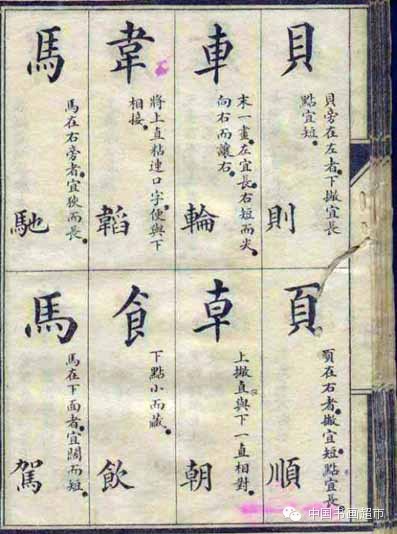 貝
貝旁在左者。下撇宜長。
點宜短。
則
車
末一畫。左宜長。右短而尖。
向右而讓右。
輪
韋
將上直粘連口字。便與下
相接。
韜
馬
馬在右旁者。宜狹而長。
馳
頁
頁在右者。撇宜短。點宜長。
順
𠦝
上撇直與下一直相對。
朝
食
下點小而藏。
飲
馬
馬在下面者。宜闊而短。
駕
中国书画超市